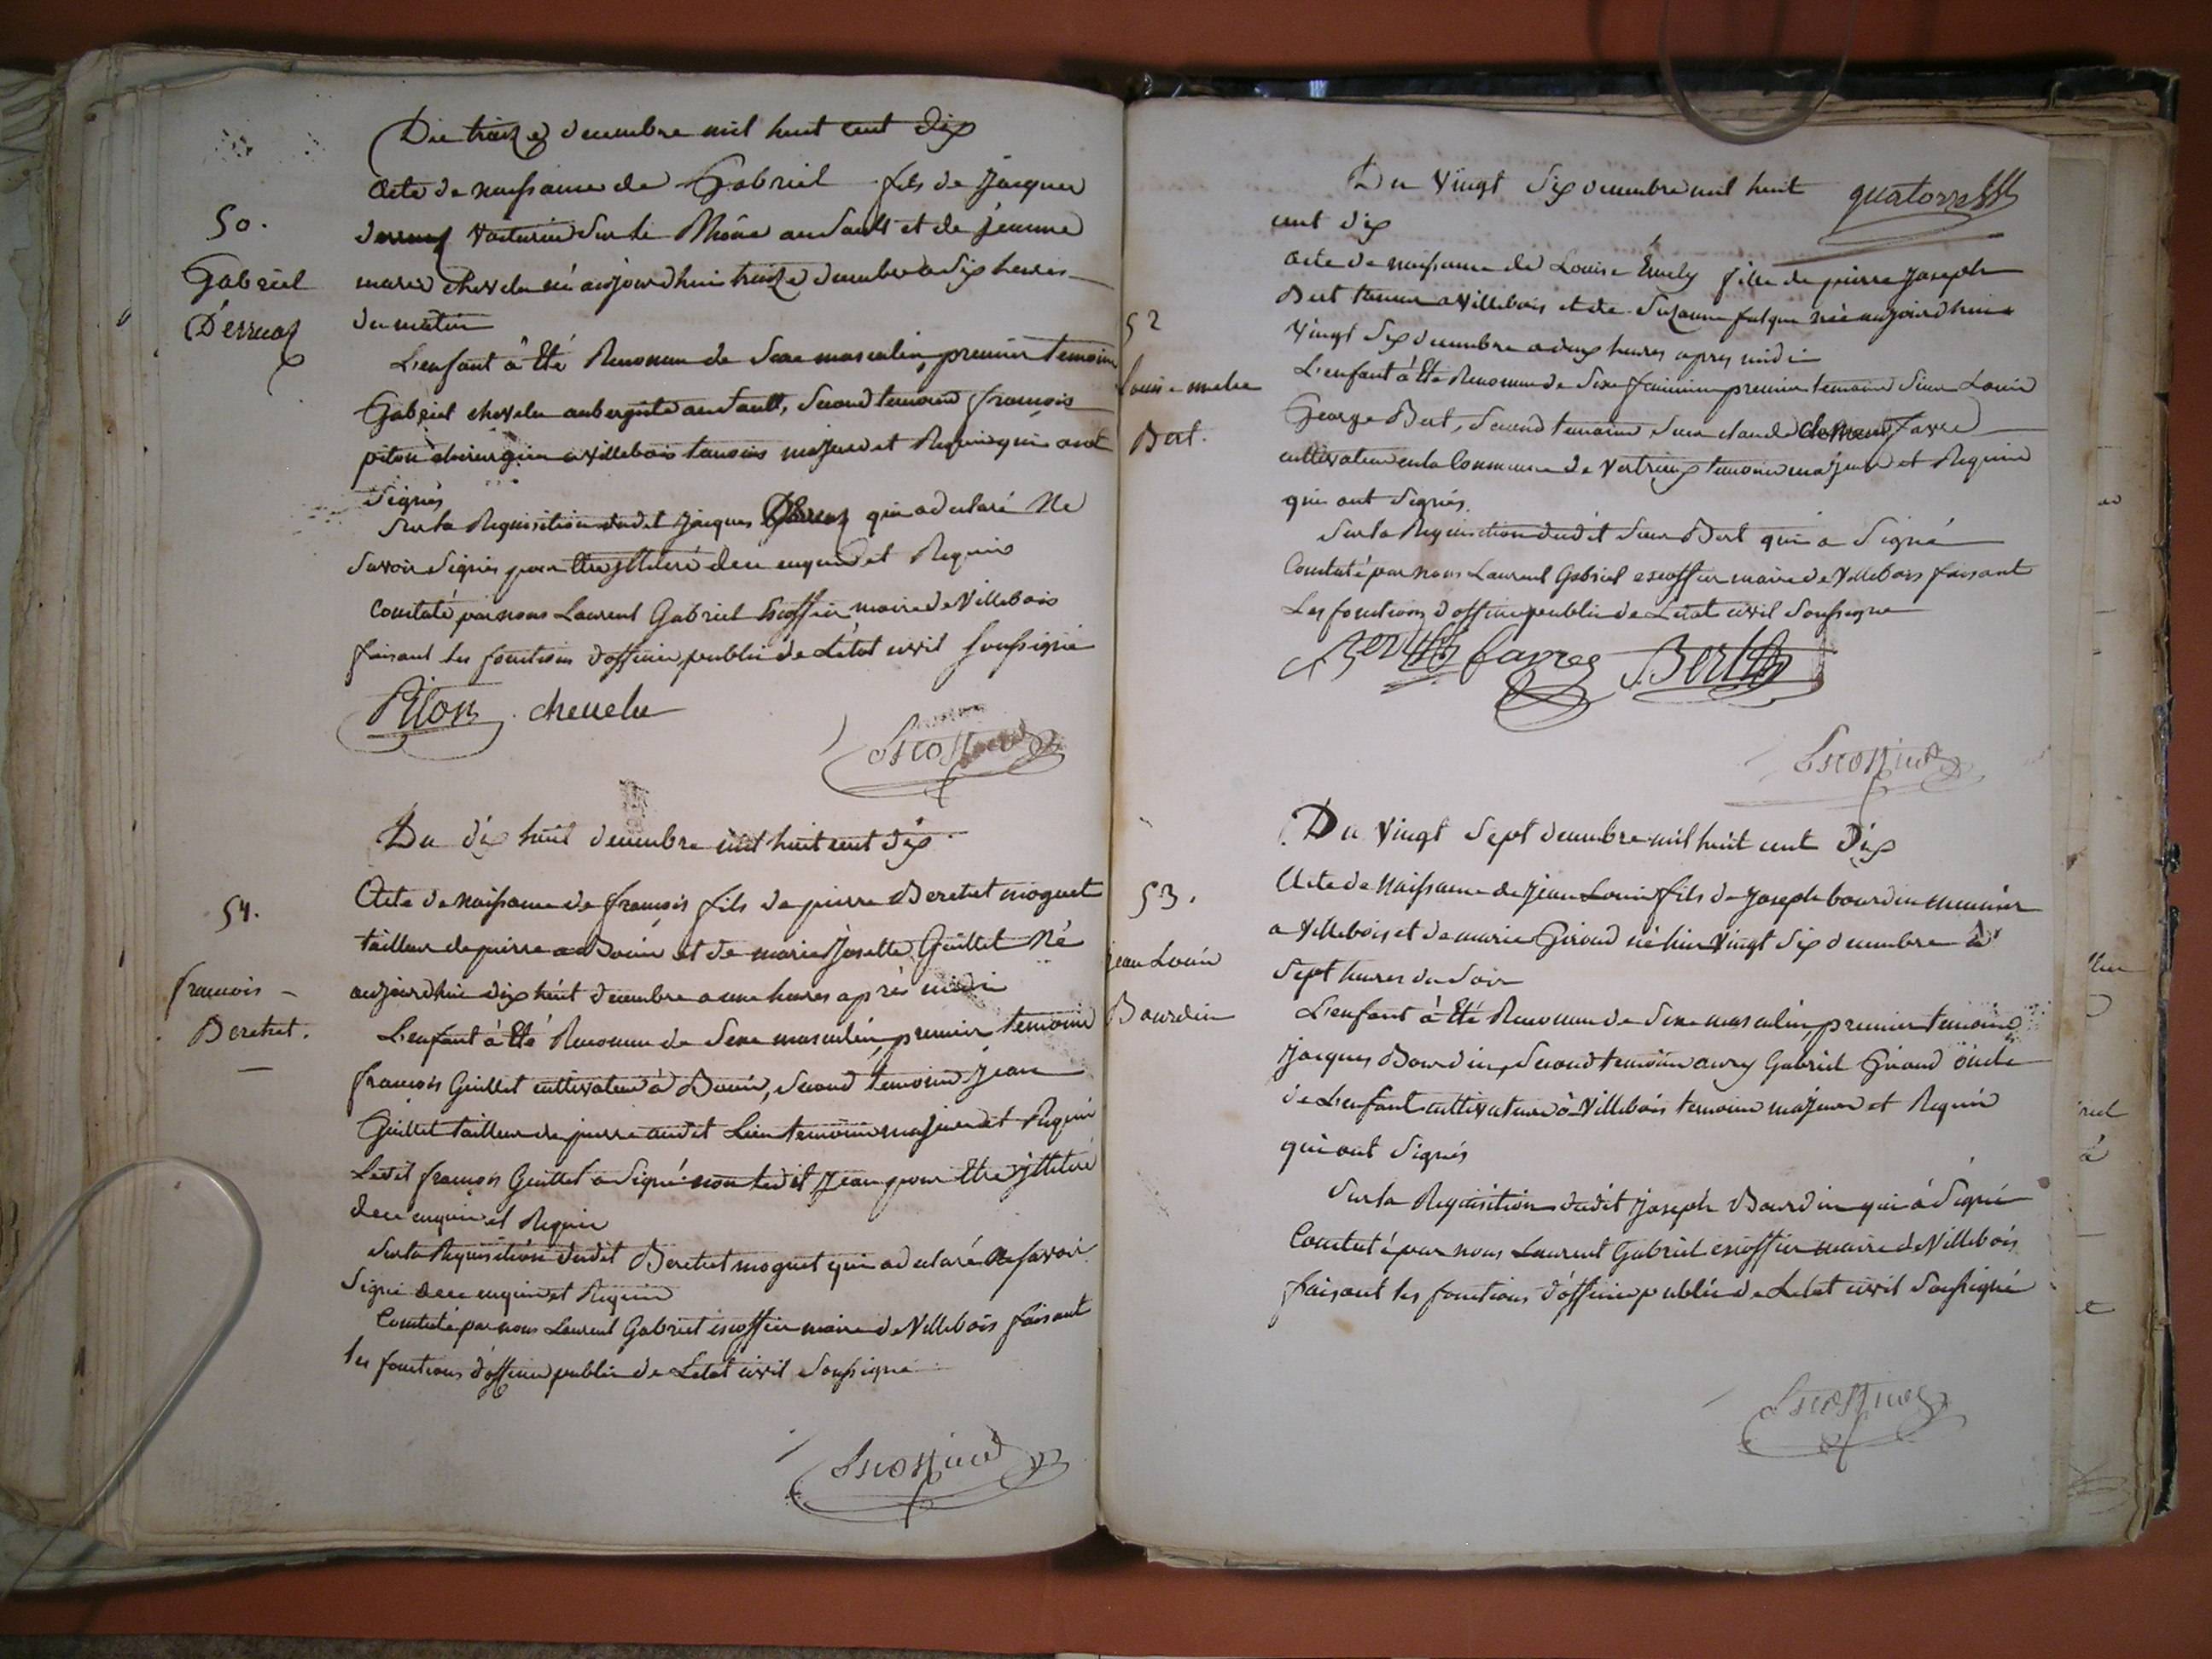 Du treize decembre mil huit cent dix
50.
Gabriel
Derruaz
acte de naissance de Gabriel fils de Jacques
derruaz voiturier sur le Rhône au Sault et de jeanne
marie chevelu né aujourdhui treize decembre a dix heures
du matin
L'enfant à Eté Reconnu de Sexe masculin, premier temoin
Gabriel chevelu aubergiste au Sault, Second temoin françois
piton chirurgien a villebois temoins majeurs et Requis qui ont
Signés
Sur la Requisition dudit Jacques Derruaz qui a declaré Ne
Savoir Signer pour Etre jlliteré de ce enquis et Requis
Constaté par nous Laurent Gabriel Escoffier maire de Villebois
faisant les fonctions d'officier public de L'état civil Soussigné
Piton chevelu
Escoffier
Du dix huit decembre mil huit cent dix
51.
francois
Beretet.
Acte de naissance de françois fils de pierre Beretet moguet
tailleur de pierre a Bouis et de marie Josette Guillet Né
aujourdhui dix huit decembre a une heures après midi
L'enfant à Eté Reconnu de Sexe masculin, premier temoin
françois Guillet cultivateur à Bouis, Second temoin Jean
Guillet tailleur de pierre audit Lieu temoins majeurs et Requis
Ledit françois Guillet a Signé non Ledit Jean pour Etre jlliteré
de ce enquis et Requis
Sur la Requisition dudit Beretet moguet qui a declaré Ne Savoir
Signé de ce enquis et Requis
Constaté par nous Laurent Gabriel escoffier maire de Villebois faisant
les fonctions d'officier public de L'etat civil Soussigné
Escoffier
quatorze
Du Vingt Six decembre mil huit
cent dix
52
Louise
Bert.
acte de naissance de Louise Emely fille de pierre Joseph
Bert taneur a Villebois et de Suzanne falque née aujourdhui
Vingt Six decembre a deux heures apres midi
L'enfant à Eté Reconnu de Sexe féminin premier temoin Sieur Louis
George Bert, Second temoin Sieur claude favre
cultivateur en la Commune de Vertrieux temoins majeurs et Requis
qui ont Signés.
Sur la Requisition dudit Sieur Bert qui a Signé
Constaté par nous Laurent Gabriel escoffier maire de Villebois faisant
Les fonctions d'officier public de L'etat civil Soussigné
Bert favre Bert
Escoffier
Du Vingt Sept decembre mil huit cent Dix
53.
jean Louis
Bourdin
Acte de Naissance de Jean Louis fils de Joseph bourdin meunier
a Villebois et de marie Giroud né hier Vingt Six decembre à
Sept heures du Soir
L'enfant à Eté Reconnu de Sexe masculin, premier temoin
Jacques Bourdin, Second temoin Gabriel Giroud oncle
de L'enfant cultivateurs à Villebois temoins majeurs et Requis
qui ont Signés
Sur la Requisition dudit Joseph Bourdin qui à Signé
Constaté par nous Laurent Gabriel escoffier maire de Villebois
faisant les fonctions d'officier public de L'etat civil Soussigné
Escoffier